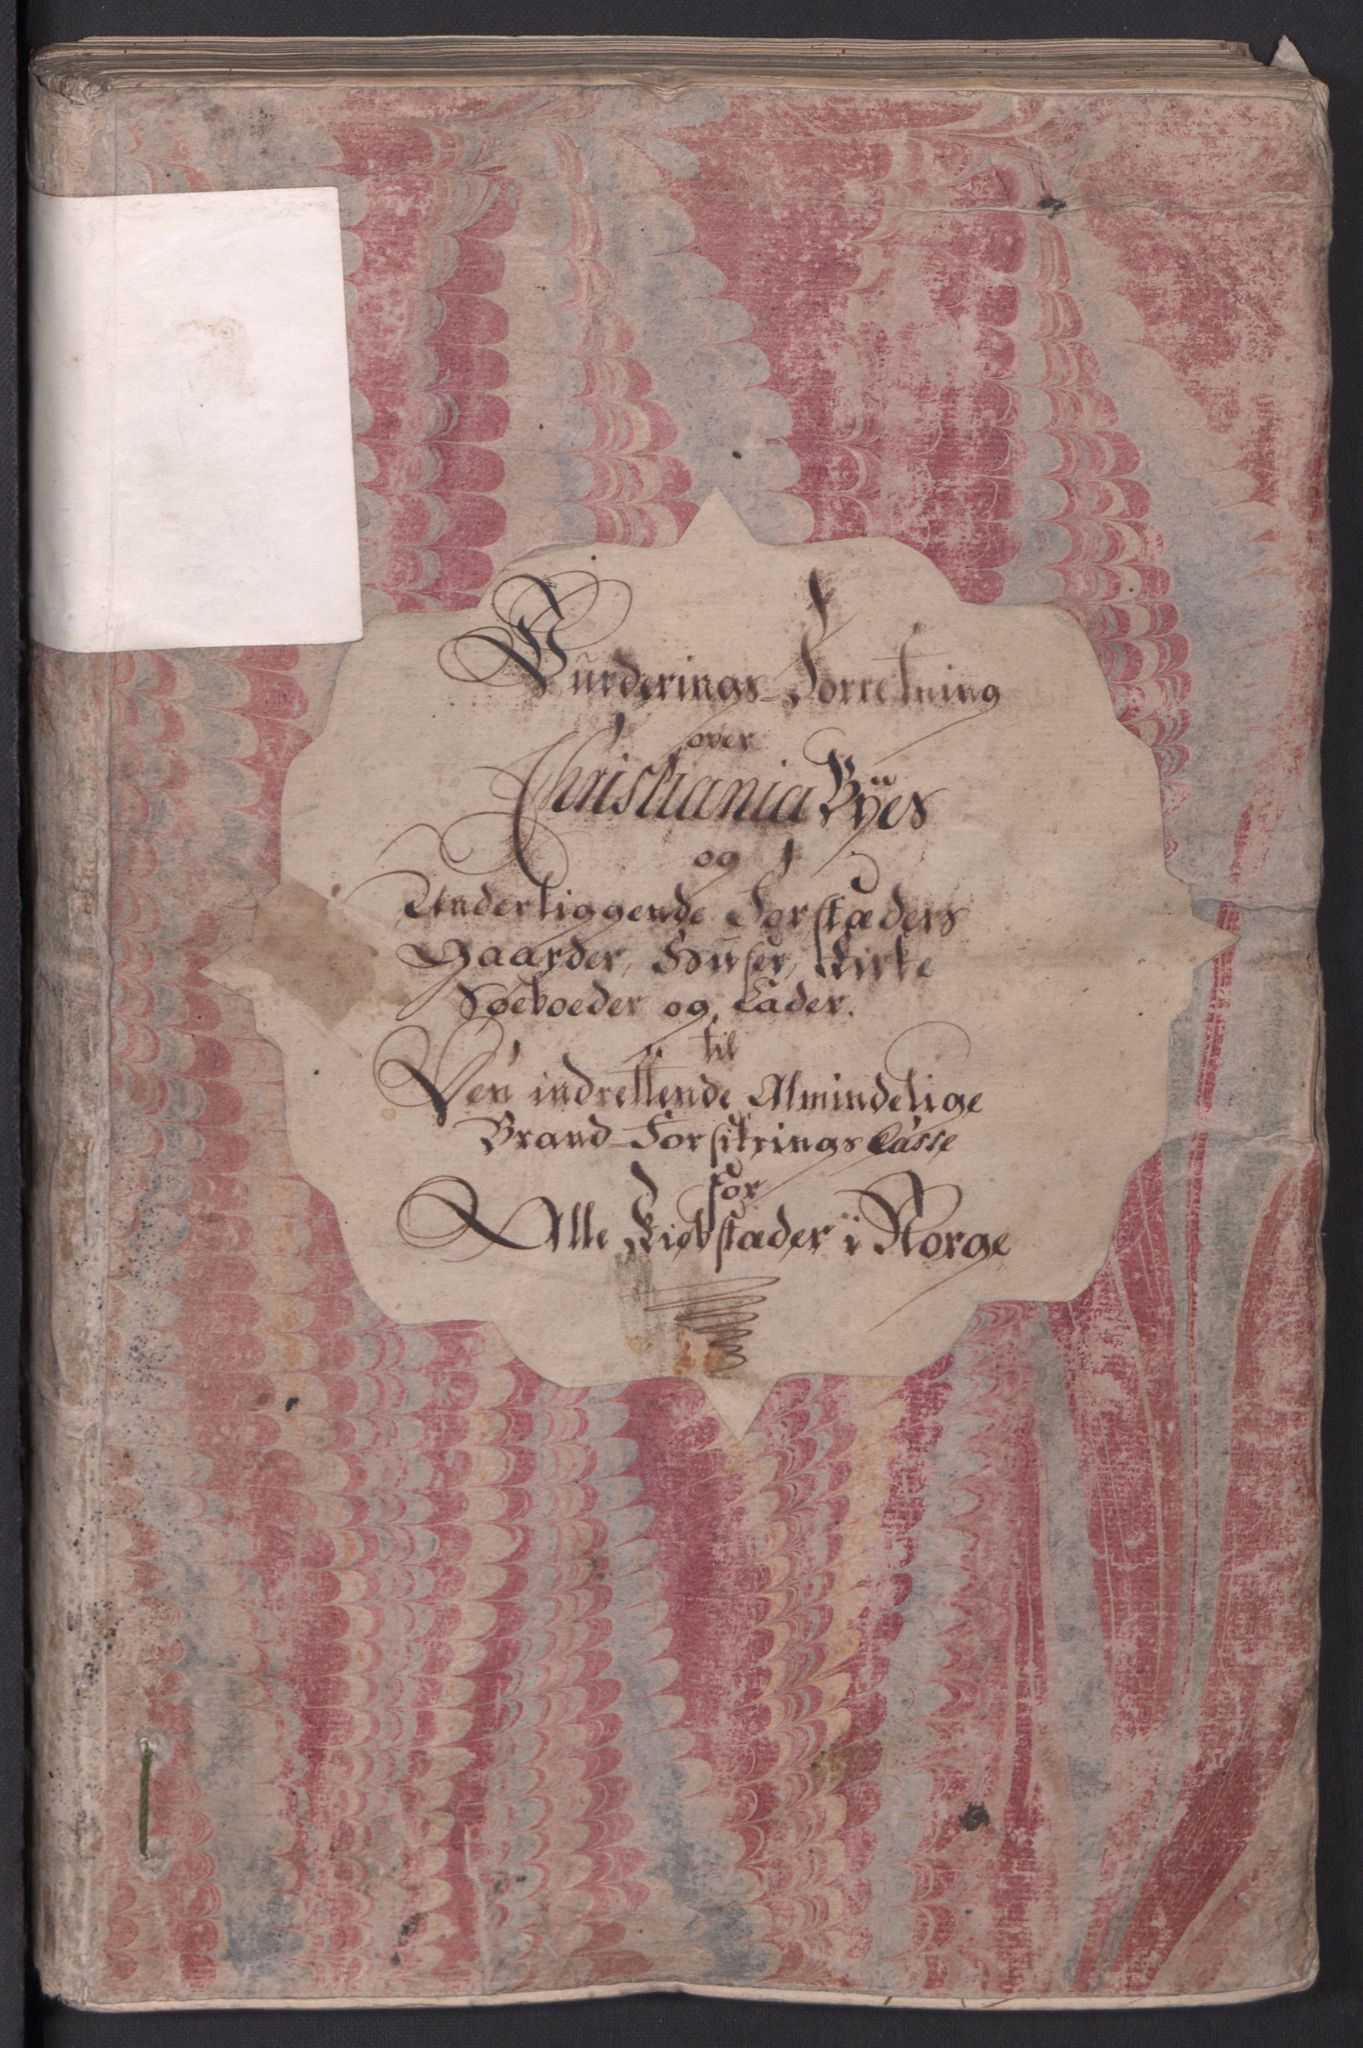 Vurderings-Forretning
over
Christiania Byes
og
Underliggende Forstæders
Gaarder, Huser, Kirke
Søeboeder og Lader.
til
Den indrettende Almindelige
Brand-Forsikrings Casse
for
Alle Kiøbstæder i Norge